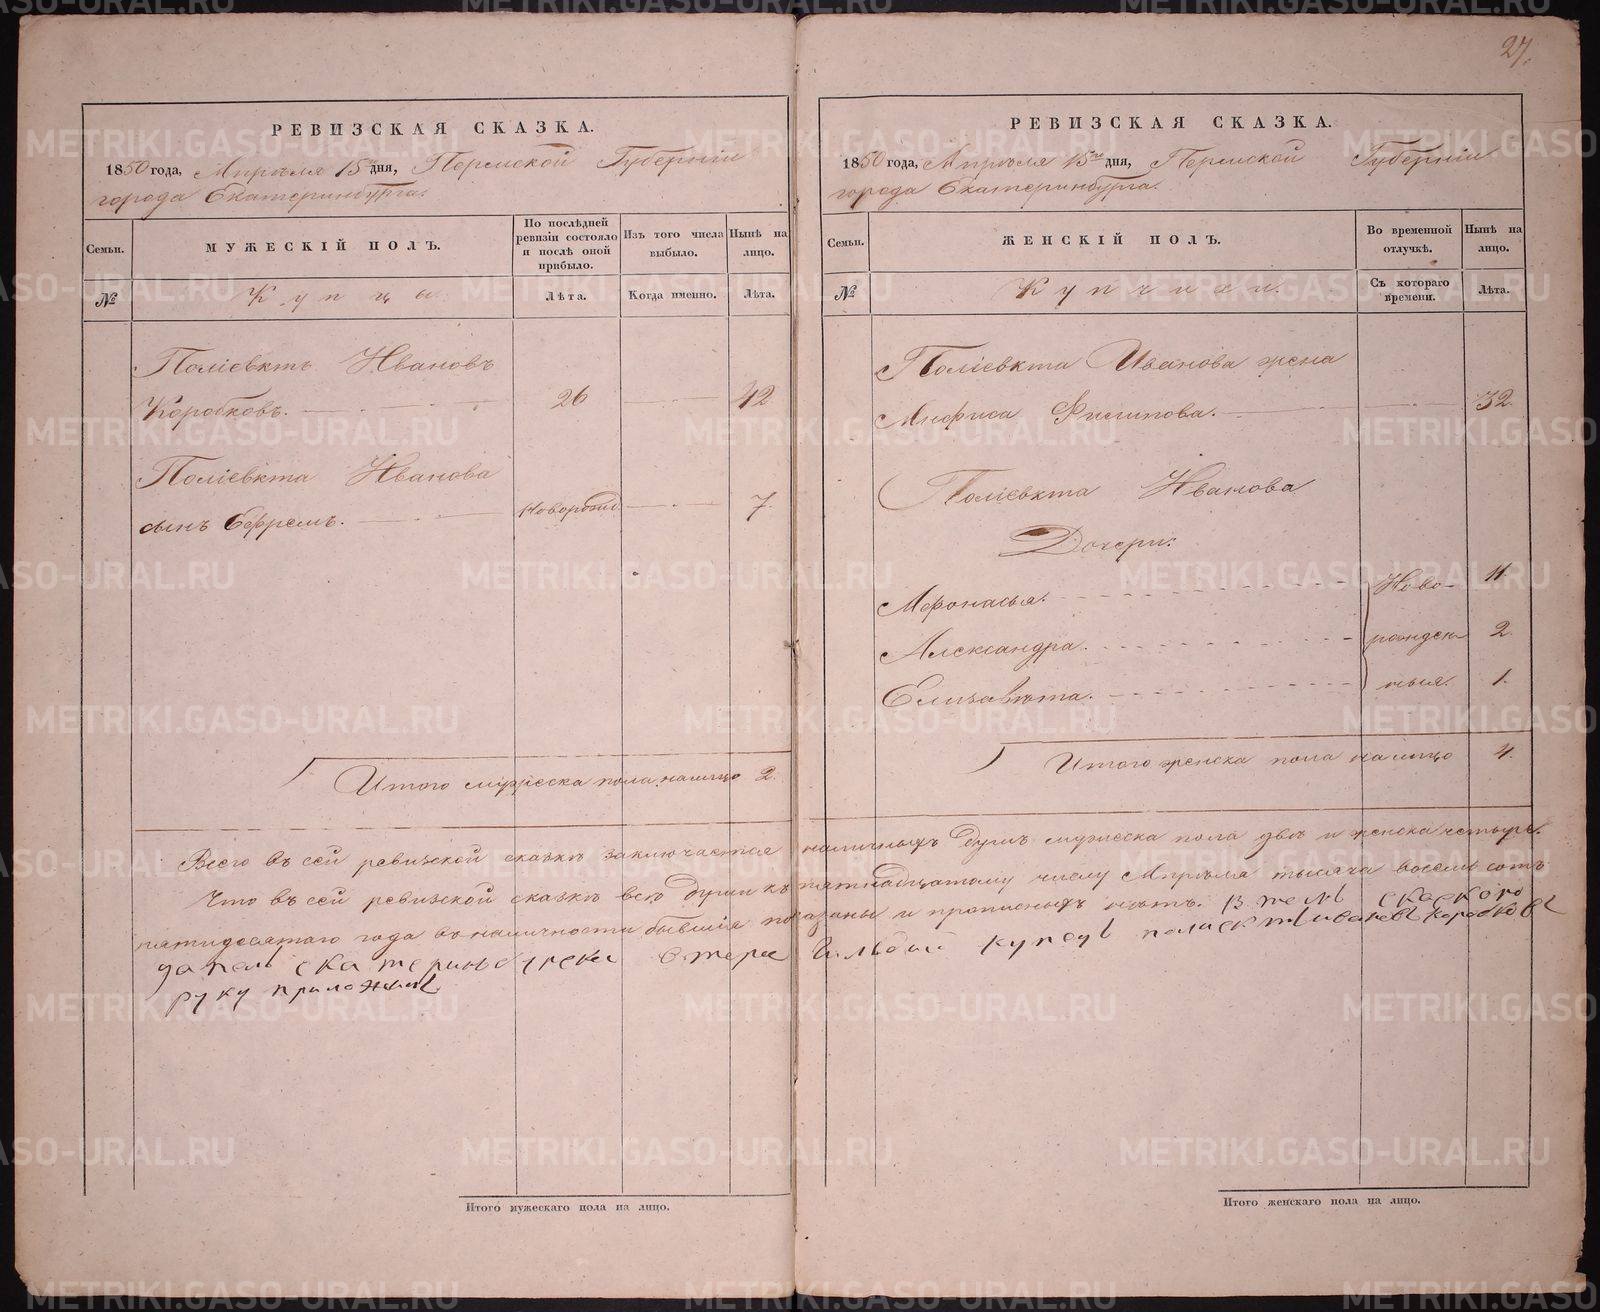 27.
РЕВИЗСКАЯ СКАЗКА.
1850 года, Апрѣля 15го дня, Пермской Губерніи
города Екатеринбурга.
Семьи.
МУЖЕСКІЙ ПОЛЪ.
По послѣдней ревизіи состояло и послѣ оной прибыло.
Изъ того числа выбыло.
Нынѣ на лицо.
№
Купцы.
Лѣта.
Когда именно.
Лѣта.
Поліевктъ Ивановъ
Коробковъ. 26 42
Поліевкта Иванова
сынъ Ефремъ. Новорожд. 7.
Итого мужеска пола налицо 2.
РЕВИЗСКАЯ СКАЗКА.
1850 года, Апрѣля 15го дня, Пермской Губерніи
города Екатеринбурга.
Семьи.
ЖЕНСКІЙ ПОЛЪ.
Во временной отлучкѣ.
Нынѣ на лицо.
№
Купчихи.
Съ котораго времени.
Лѣта.
Поліевкта Иванова жена
Анфиса Филипова. 32.
Поліевкта Иванова
Дочери:
Афонасья. Ново- 11.
Александра. рожден- 2.
Елизавѣта. ныя. 1.
Итого женска пола налицо 4.
Всего въ сей ревизской сказкѣ заключается наличныхъ душъ мужеска пола двѣ и женска четыре.
Что въ сей ревизской сказкѣ всѣ души къ пятнадцатому числу Апрѣля тысяча восемь сотъ
пятидесятаго года въ наличности бывшія показаны и прописныхъ нѣтъ. В темъ скаскопо
датель екатеринбургски втере гильдий купецъ полиектъ ивановъ коробковъ
руку приложилъ
Итого мужескаго пола на лицо.
Итого женскаго пола на лицо.
METRIKI.GASO-URAL.RU